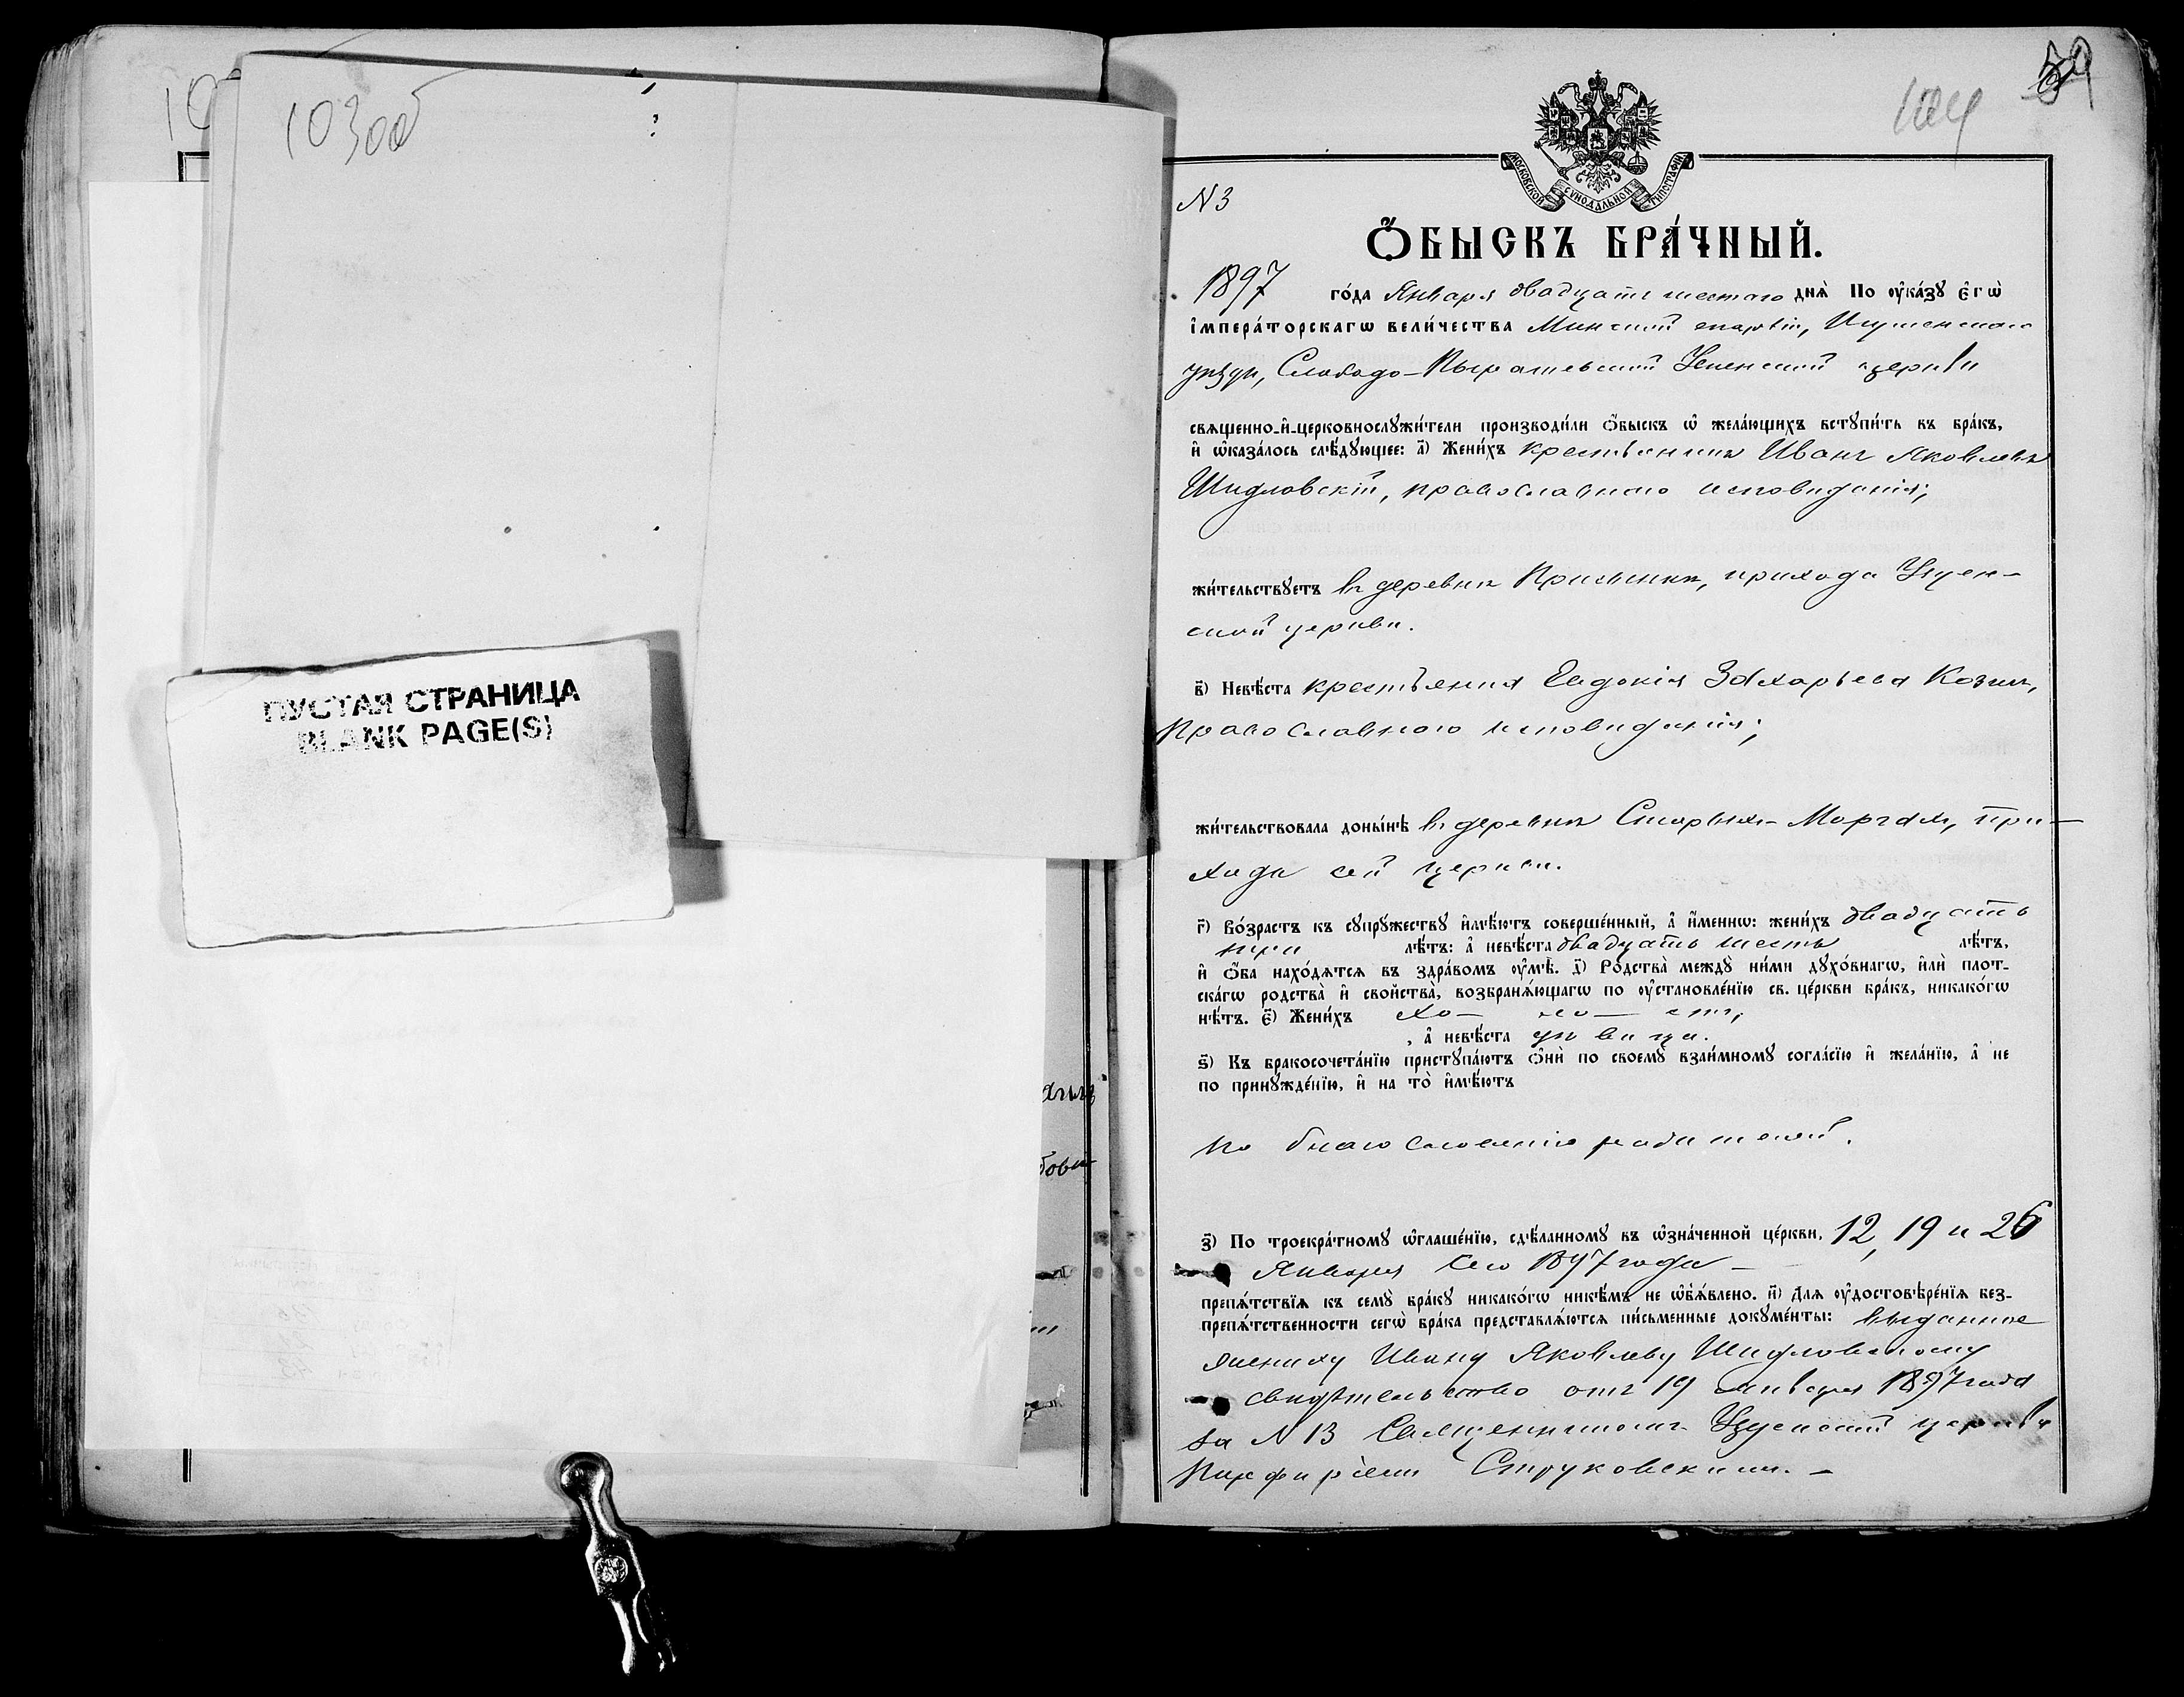 103об
ПУСТАЯ СТРАНИЦА
BLANK PAGE(S)
104
МОСКОВСКОЙ СѴНОДАЛЬНОЙ ТИПОГРАФІИ
N 3
Ѻ҆БЫСКЪ БРА́ЧНЫЙ.
1897 го́да Января двадцать шестаго дня̀ По ᲂу҆ка́зꙋ є҆гѡ̀
і҆мпера́торскагѡ вели́чества Минской епархіи, Игуменскаго
уѣзда, Слободо-Пырашевской Успенской церкви
свѧщенно-и҆-церковнослꙋжи́тели производи́ли ѻ҆́быскъ ѡ҆ жела́ющихъ вступи́ть въ бра́къ,
и҆ ѡ҆каза́лось слѣ́дꙋющее: а҃) Жени́хъ крестьянинъ Иванъ Яковлевъ
Шидловскій, православнаго исповѣданія;
жи́тельствꙋетъ въ деревнѣ прихода Узден-
ской церкви.
в҃) Невѣ́ста крестьянка Евдокія Захарьева Козикъ,
православнаго исповѣданія;
жи́тельствовала донынѣ въ деревнѣ Старыхъ-Моргахъ, при-
хода сей церкви.
г҃) Во́зрастъ къ сꙋпрꙋ́жествꙋ и҆мѣ́ютъ соверше́нный, а҆ и҆́меннѡ: жени́хъ двадцать
три лѣ́тъ: а҆ невѣ́ста двадцать шесть лѣ́тъ,
и҆ ѻ҆́ба нахо́дѧтсѧ въ здра́вомъ ᲂу҆мѣ̀. д҃) Родства̀ междꙋ̀ ни́ми дꙋхо́внагѡ, и҆лѝ плот-
ска́гѡ родства̀ и҆ свойства̀, возбранѧ́ющагѡ по ᲂу҆становле́нїю св. це́ркви бра́къ, никако́гѡ
нѣ́тъ. є҃) Жени́хъ хо — ло — стъ,
, а҆ невѣ́ста дѣвица.
ѕ҃) Къ бракосочета́нїю пристꙋпа́ютъ ѻ҆нѝ по своемꙋ̀ взаи́мномꙋ согла́сїю и҆ жела́нїю, а҆ не
по принꙋжде́нїю, и҆ на то̀ и҆мѣ́ютъ
по благословенію родителей.
з҃) По троекра́тномꙋ ѡ҆глаше́нїю, сдѣ́ланномꙋ въ ѡ҆зна́ченной це́ркви, 12, 19 и 26
Января сего 1897 года —
препѧ́тствїѧ къ семꙋ̀ бра́кꙋ никако́гѡ никѣ́мъ не ѡ҆б̾ѧ́влено. и҃) Длѧ ᲂу҆достовѣре́нїѧ без-
препѧ́тственности сегѡ̀ бра́ка представлѧ́ютсѧ пи́сьменные докꙋме́нты: выданное
жениху Ивану Яковлеву Шидловскому
свидѣтельство отъ 19 января 1897 года
за N 13 Священникомъ Узденской церкви
Порфиріемъ Струковскимъ. —